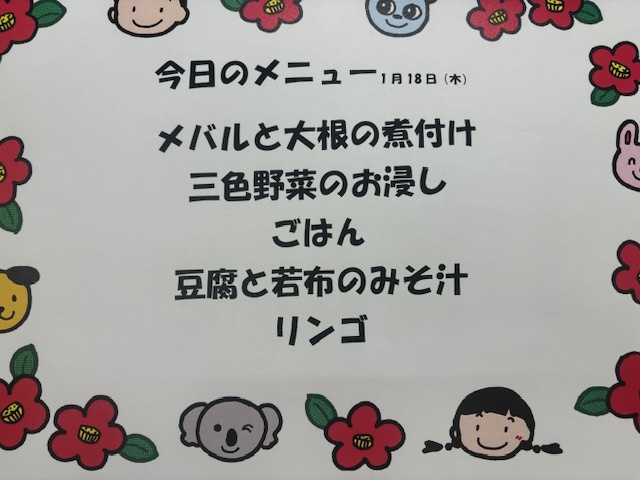 今日のメニュー1月18日(木)
メバルと大根の煮付け
三色野菜のお浸し
ごはん
豆腐と若布のみそ汁
リンゴ